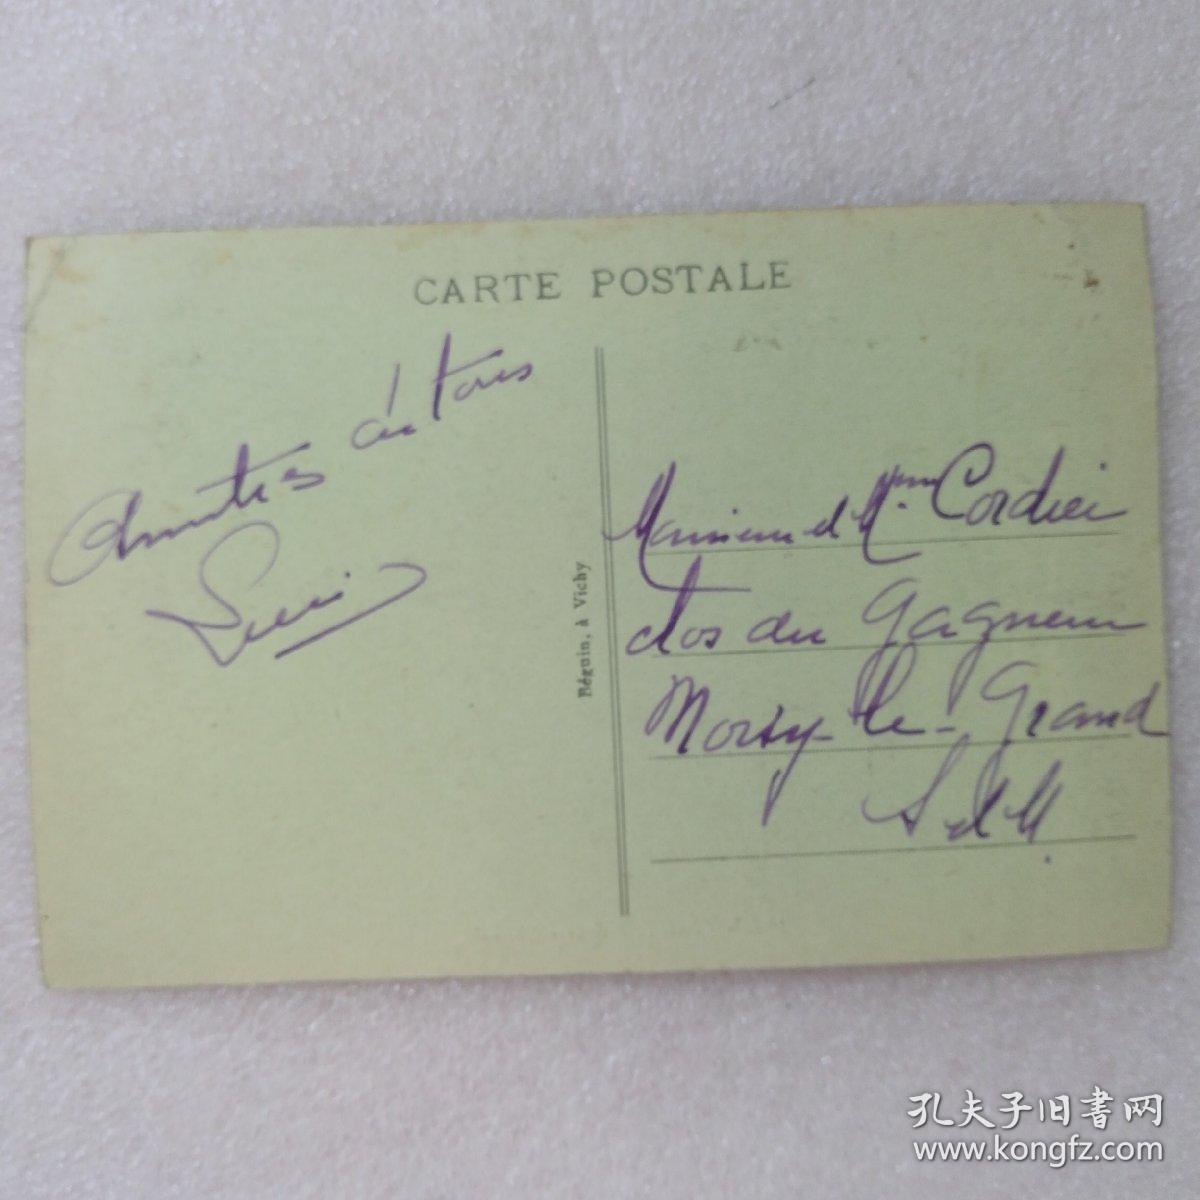 CARTE POSTALE
Amitiés à tous
Béguin, à Vichy
Monsieur et Mme Cordier
clos du Gagneur
Noisy-le-Grand
S et M.
孔夫子旧书网
www.kongfz.com